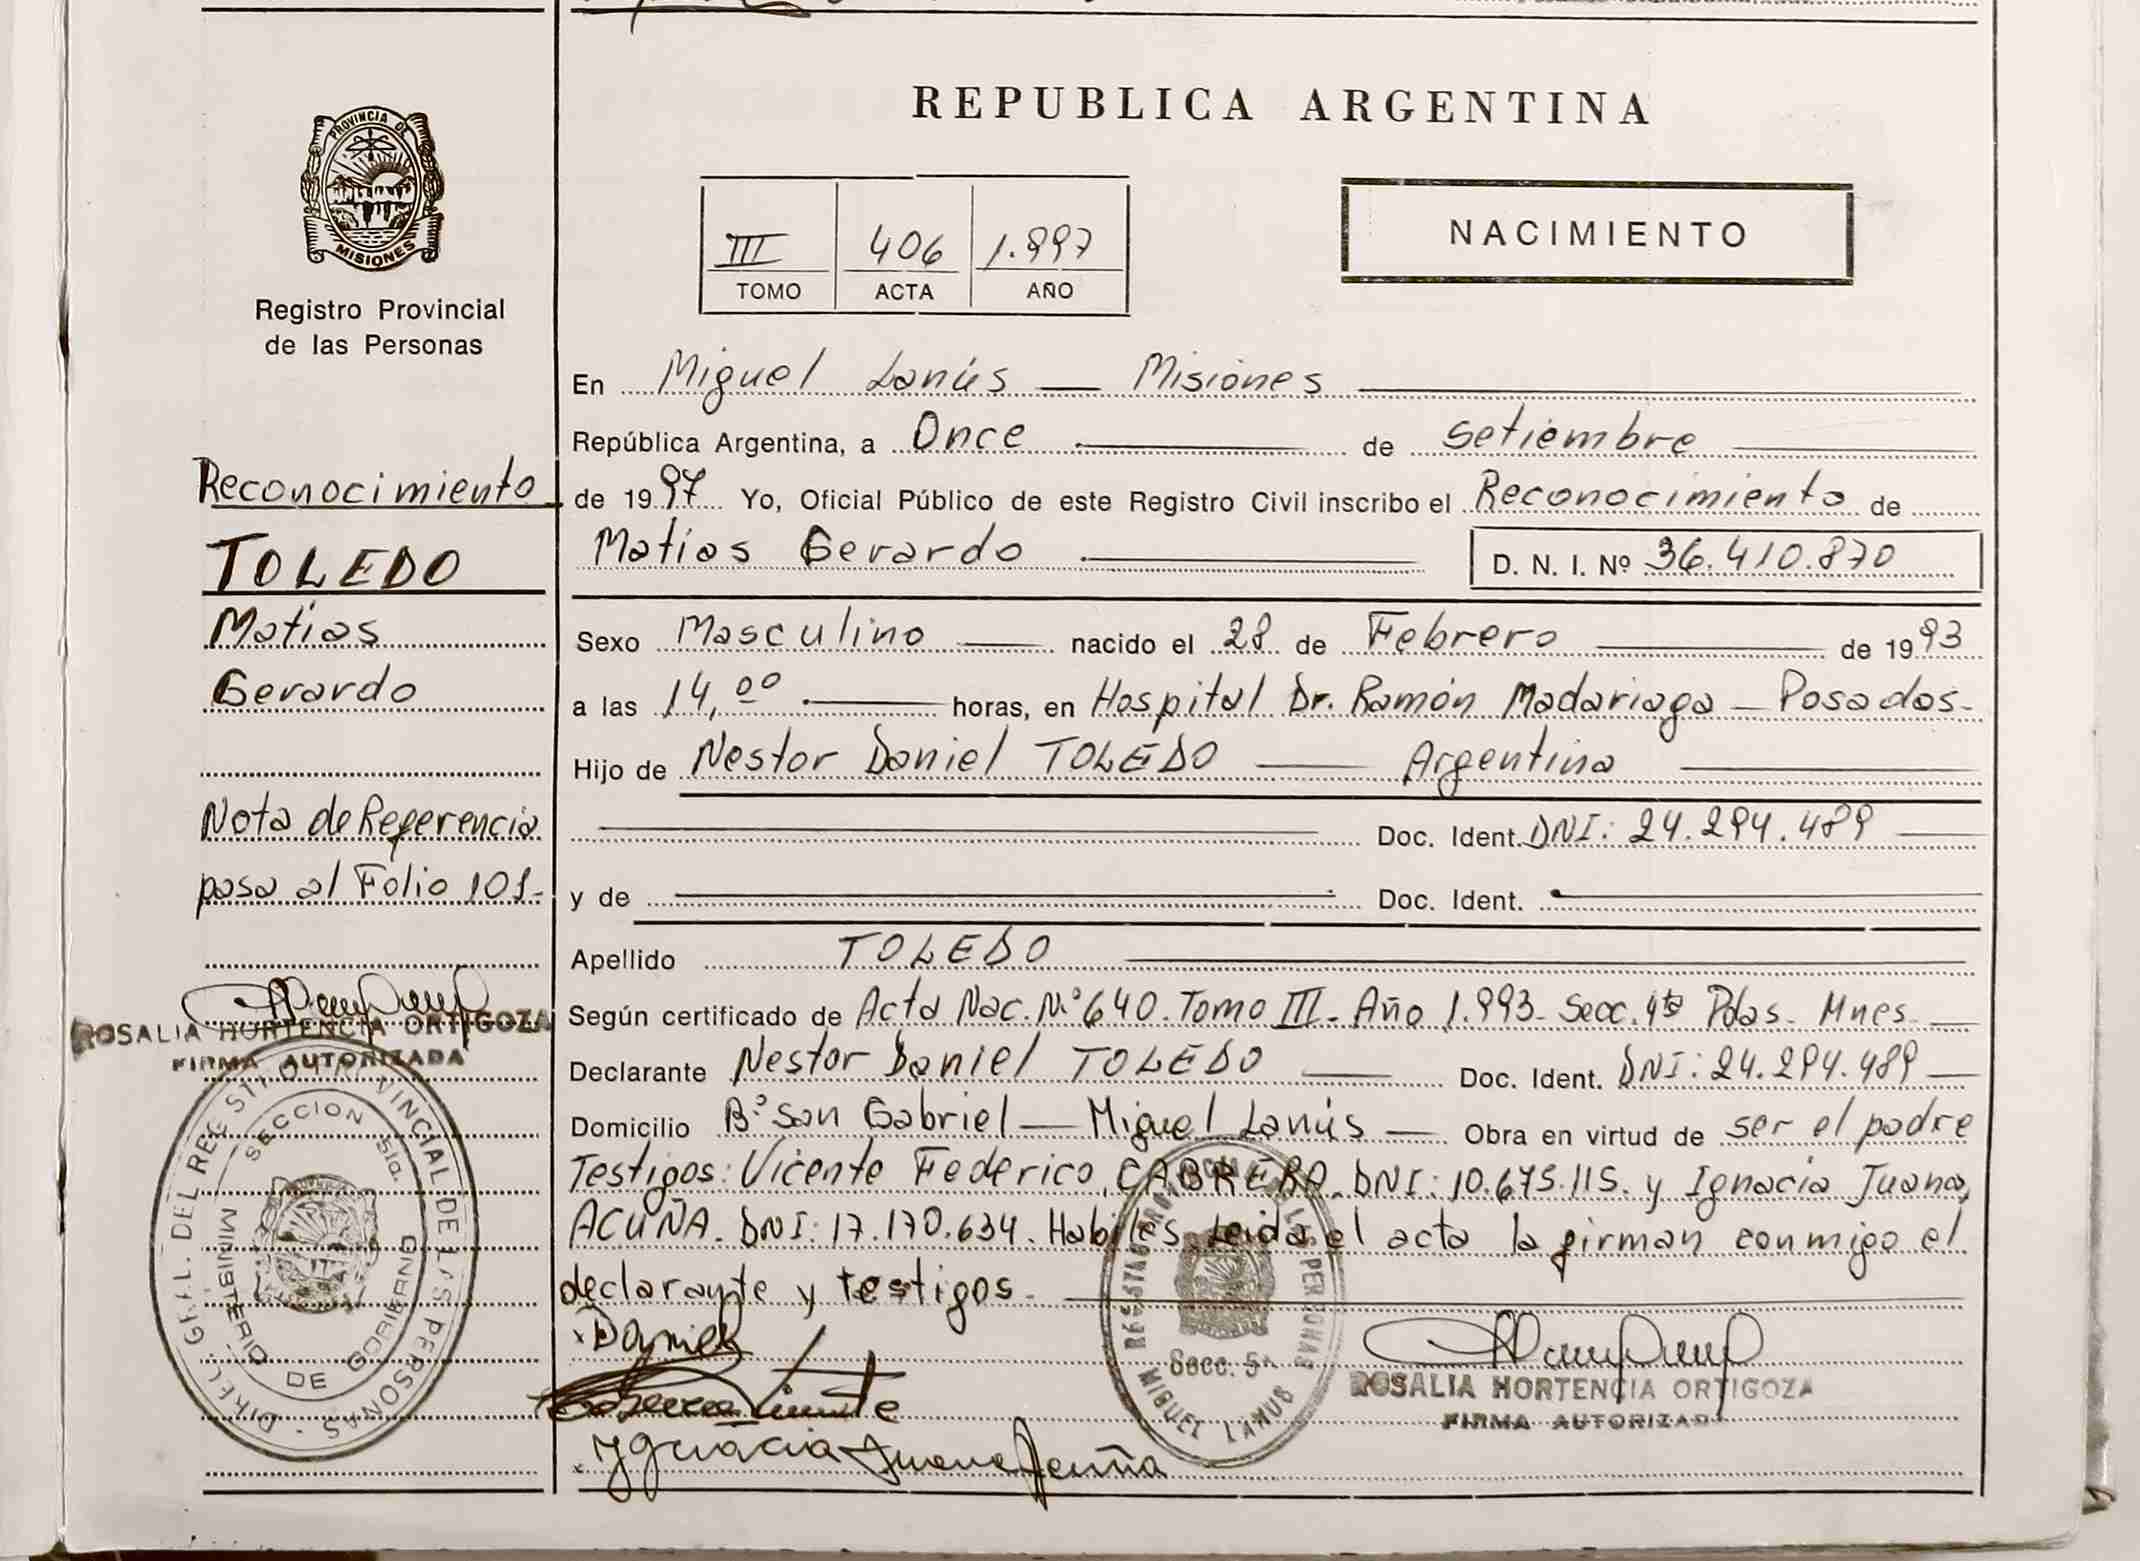 REPUBLICA ARGENTINA
PROVINCIA DE
MISIONES
Registro Provincial
de las Personas
III 406 1.997
TOMO ACTA AÑO
NACIMIENTO
Reconocimiento
TOLEDO
Matias
Gerardo
Nota de Referencia
pasa al Folio 101.-
ROSALIA HORTENCIA ORTIGOZA
FIRMA AUTORIZADA
DIREC. GRAL. DEL REGISTRO PROVINCIAL DE LAS PERSONAS
SECCION 5ta.
MINISTERIO DE GOBIERNO
En Miguel Lanús — Misiones
República Argentina, a Once de setiembre
de 1997 Yo, Oficial Público de este Registro Civil inscribo el Reconocimiento de
Matias Gerardo D. N. I. Nº 36.410.870
Sexo Masculino nacido el 28 de Febrero de 1993
a las 14,00 horas, en Hospital Dr. Ramón Madariaga — Posadas-
Hijo de Nestor Daniel TOLEDO — Argentina
Doc. Ident. DNI: 24.294.489
y de Doc. Ident.
Apellido TOLEDO
Según certificado de Acta Nac. Nº 640. Tomo III- Año 1.993- Secc. 4ta Pdas- Mnes-
Declarante Nestor Daniel TOLEDO Doc. Ident. DNI: 24.294.489
Domicilio Bº San Gabriel — Miguel Lanús — Obra en virtud de ser el padre
Testigos: Vicente Federico CABRERA. DNI: 10.675.115. y Ignacia Juana
ACUÑA. DNI: 17.170.634. Habiles. Leida el acta la firman conmigo el
declarante y testigos.
Daniel
Vicente
Ygnacia Juana Acuña
Secc. 5ª
MIGUEL LANUS
ROSALIA HORTENCIA ORTIGOZA
FIRMA AUTORIZADA